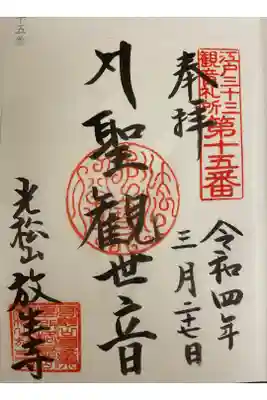 奉拝
江戸三十三
観音札所
第十五番
令和四年
三月二十七日
聖観世音
光松山
放生寺